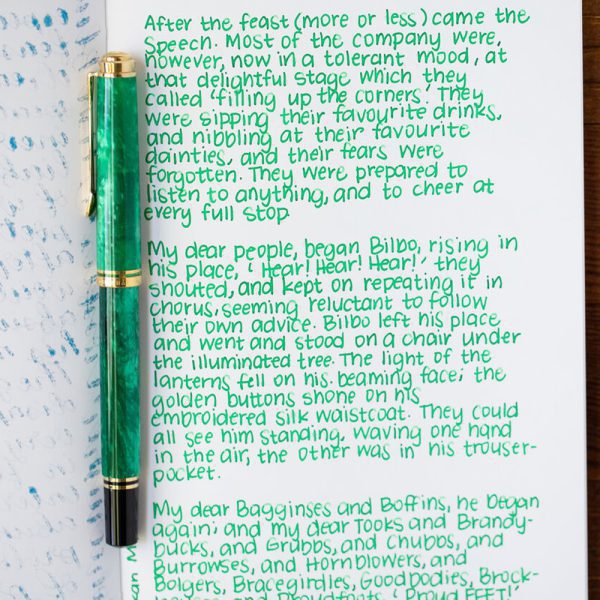 After the feast (more or less) came the
Speech. Most of the company were,
however, now in a tolerant mood, at
that delightful stage which they
called 'filling up the corners'. They
were sipping their favourite drinks,
and nibbling at their favourite
dainties, and their fears were
forgotten. They were prepared to
listen to anything, and to cheer at
every full stop.
My dear people, began Bilbo, rising in
his place, 'Hear! Hear! Hear!' they
shouted, and kept on repeating it in
chorus, seeming reluctant to follow
their own advice. Bilbo left his place
and went and stood on a chair under
the illuminated tree. The light of the
lanterns fell on his beaming face; the
golden buttons shone on his
embroidered silk waistcoat. They could
all see him standing, waving one hand
in the air, the other was in his trouser-
pocket.
My dear Bagginses and Boffins, he began
again; and my dear Tooks and Brandy-
bucks, and Grubbs, and Chubbs, and
Burrowses, and Hornblowers, and
Bolgers, Bracegirdles, Goodbodies, Brock-
houses and Proudfoots. 'Proud FEET!'